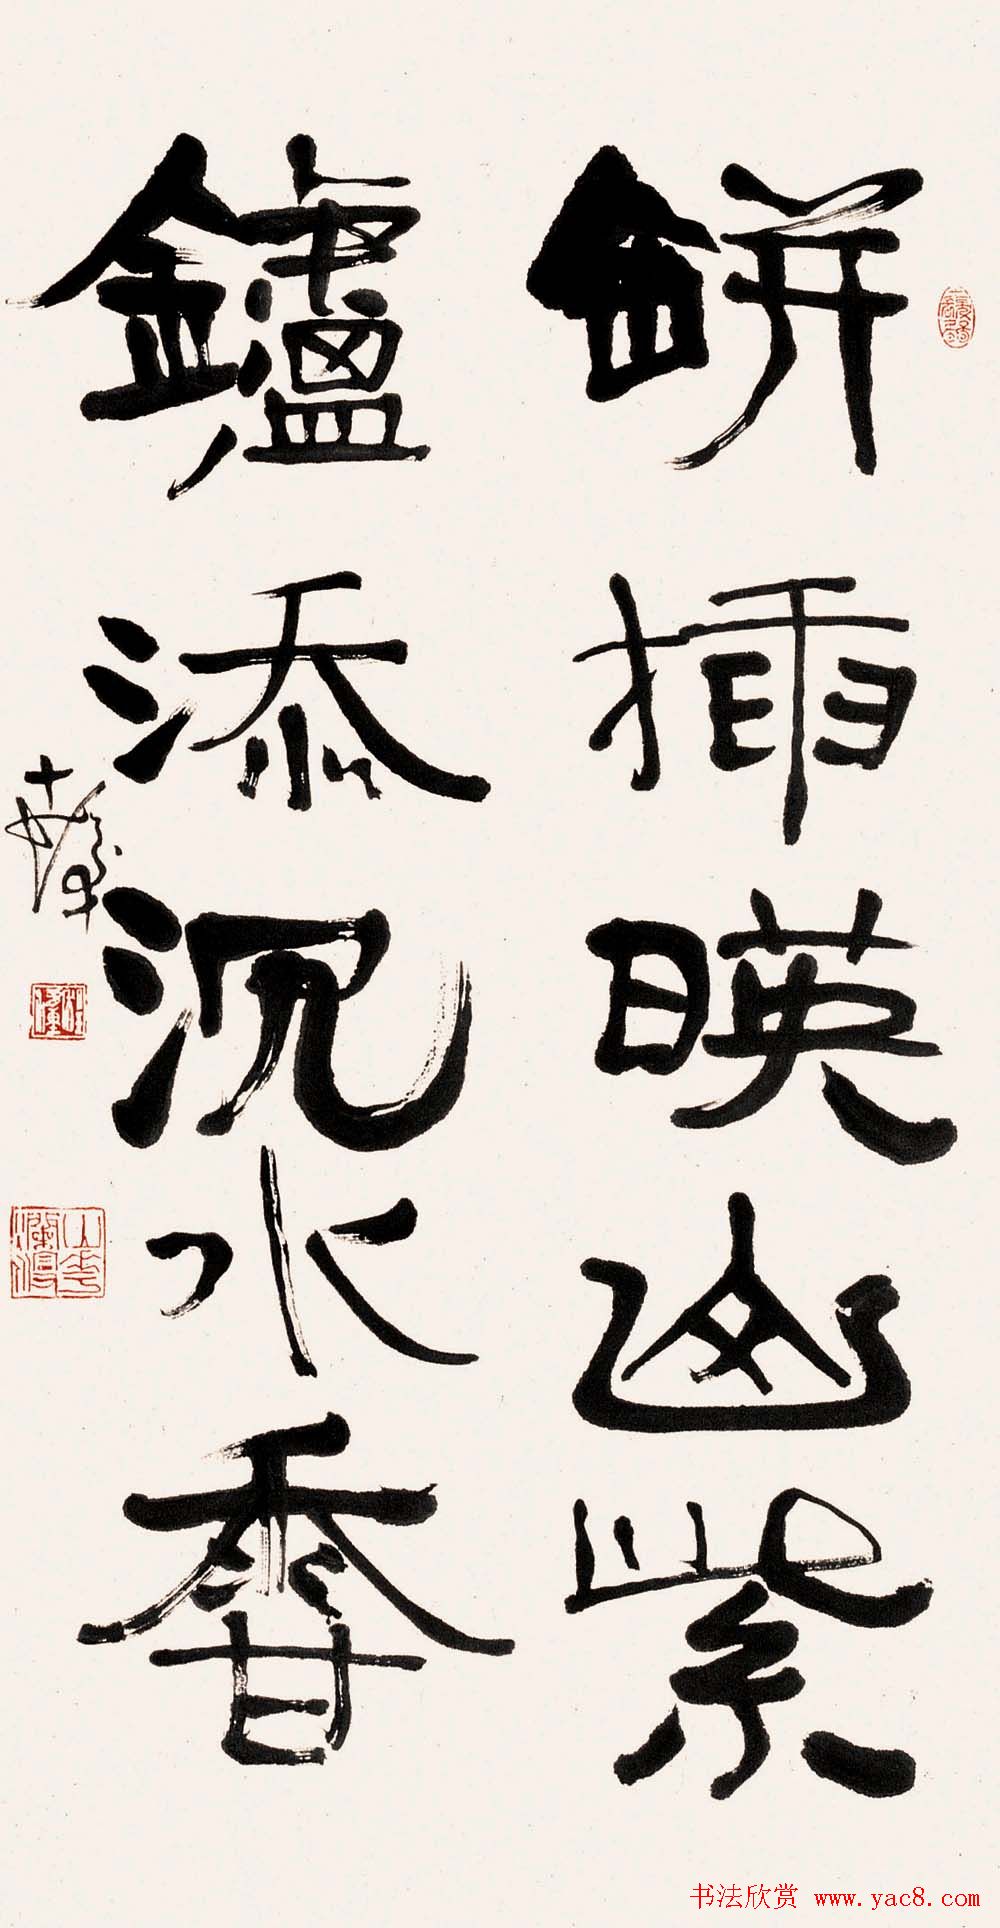 缾插暎幽紫
鑪添沉水香
山花瀾漫
书法欣赏 www.yac8.com